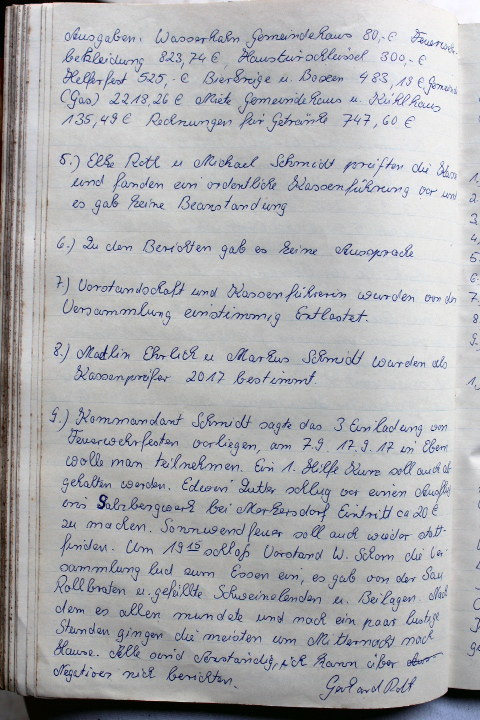 Ausgaben: Wasserhahn Gemeindehaus 80,-€ Feuerwehr
bekleidung 823,74€, Haustürschlüssel 300,-€
Helferfest 525,-€ Bierkrüge u. Boxen 483,19€ Gemeinde
(Gas) 2213,26€ Miete Gemeindehaus u. Kühlhaus
135,49€ Rechnungen für Getränke 747,60€
5.) Elke Roth u Michael Schmidt prüften die Kasse
und fanden ein ordentliche Kassenführung vor und
es gab keine Beanstandung
6.) Zu den Berichten gab es keine Aussprache
7.) Vorstandschaft und Kassenführerin wurden von der
Versammlung einstimmig Entlastet.
8.) Ehrlich u Markus Schmidt wurden als
Kassenprüfer 2017 bestimmt.
9.) Kommandant Schmidt sagte das 3 Einladung von
Feuerwehrfesten vorliegen, am 7.9. 17.9.17 in Eben
wolle man teilnehmen. Ein 1. Hilfe Kurs soll auch ab
gehalten werden. Edwin schlug vor einen Ausflug
ins Salzbergwerk bei Merkersdorf Eintritt ca 20€
zu machen. Sonnwendfeuer soll auch wieder statt-
finden. Um 19 15 schloß Vorstand W. Schom die Ver-
sammlung lud zum Essen ein, es gab von der Sau
Rollbraten u. gefüllte Schweinelenden u. Beilagen. Nach
dem es allen mundete und noch ein paar lustige
Stunden gingen die meisten um Mitternacht nach
Hause. Alle sind ich kann über
Negatives nich berichten.
Gerhard Roth